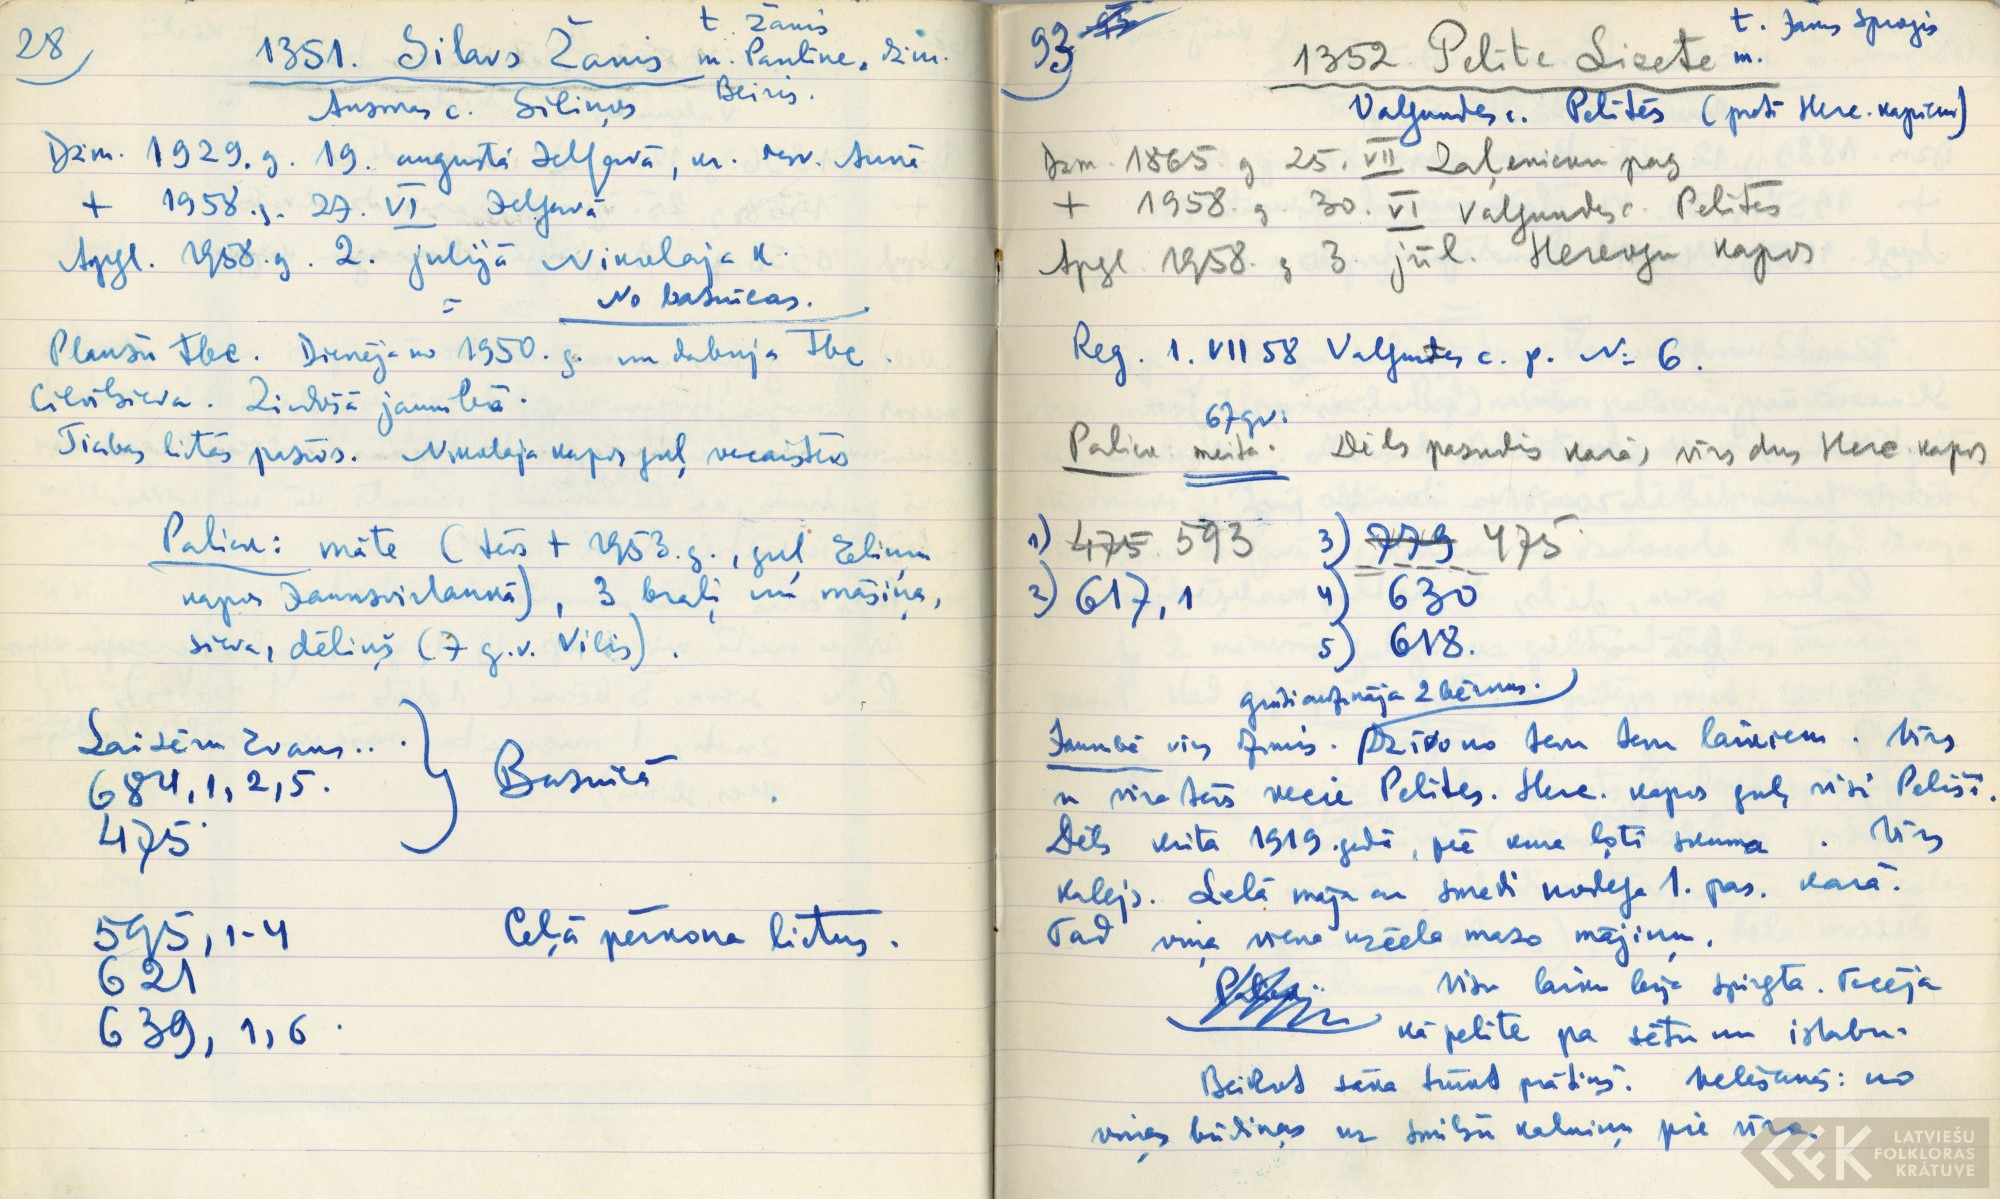 28
1351. Silavs Žanis
t. Žanis
m. Pauline, dzim.
Beiris.
Ausmas c. Siliņos
Dzim. 1929. g. 19. augustā Jelgavā, kr. Annā
+ 1958. g. 27. VI Jelgavā
Apgl. 1958. g. 2. julijā Nikolaja k.
No baznīcas.
Plaušu Tbc. Dienēja no 1950. g. un dabuja Tbc.
Cilvēks Ziedošā jaunībā.
Nikolaja kapos guļ vecaistēvs
Paliek: māte (tēvs + 1953. g., guļ
kapos Jaunsvirlaukā), 3 braļi un māsiņa,
sieva, dēliņš (7 g. v. Vilis).
Laišeru Evans..
684, 1, 2, 5.
475
Baznīcā
595, 1-4
621
639, 1, 6.
Ceļā pērkona lietus.
93
1352 Pelīte Lizete
t. Jānis Sproģis
m.
Valgundes c. Pelītēs (preti Herc. kapiem)
Dzm. 1865 g 25. VII Zaļenieku pag
+ 1958. g. 30. VI Valgundes c. Pelītēs
Apgl 1958. g 3 jūl. Hercogu kapos
Reg. 1. VII 58 Valgundes c. p. N= 6.
67 g. v.
Paliek meita. Dēls pazudis karā, vīrs dus Herc. kapos
1) 475 593 3) 779 475
2) 617, 1 4) 630
5) 618.
grūti audzināja 2 bērnus.
Jaunībā viņs Dzīvo no tem tem laikiem. Vīrs
un vīra tēvs vecie Pelītes. Herc. kapos guļ visi Pelīši.
Dēls krita 1919. gadā, pēc kura ļoti skuma. Vīrs
kalejs. Lielā māja ar smedi nodega 1. pas. karā.
Tad viņa viena uzcēla mazo mājiņu.
Visu laiku bija spirgta. Tecēja
kā pelīte pa sētu un istabu.
Beidzot sāka trūkt prātiņš. Vēlēšanās: no
viņas būdiņas uz smilšu kalniņu pie vīra.
LATVIEŠU
FOLKLORAS
KRĀTUVE